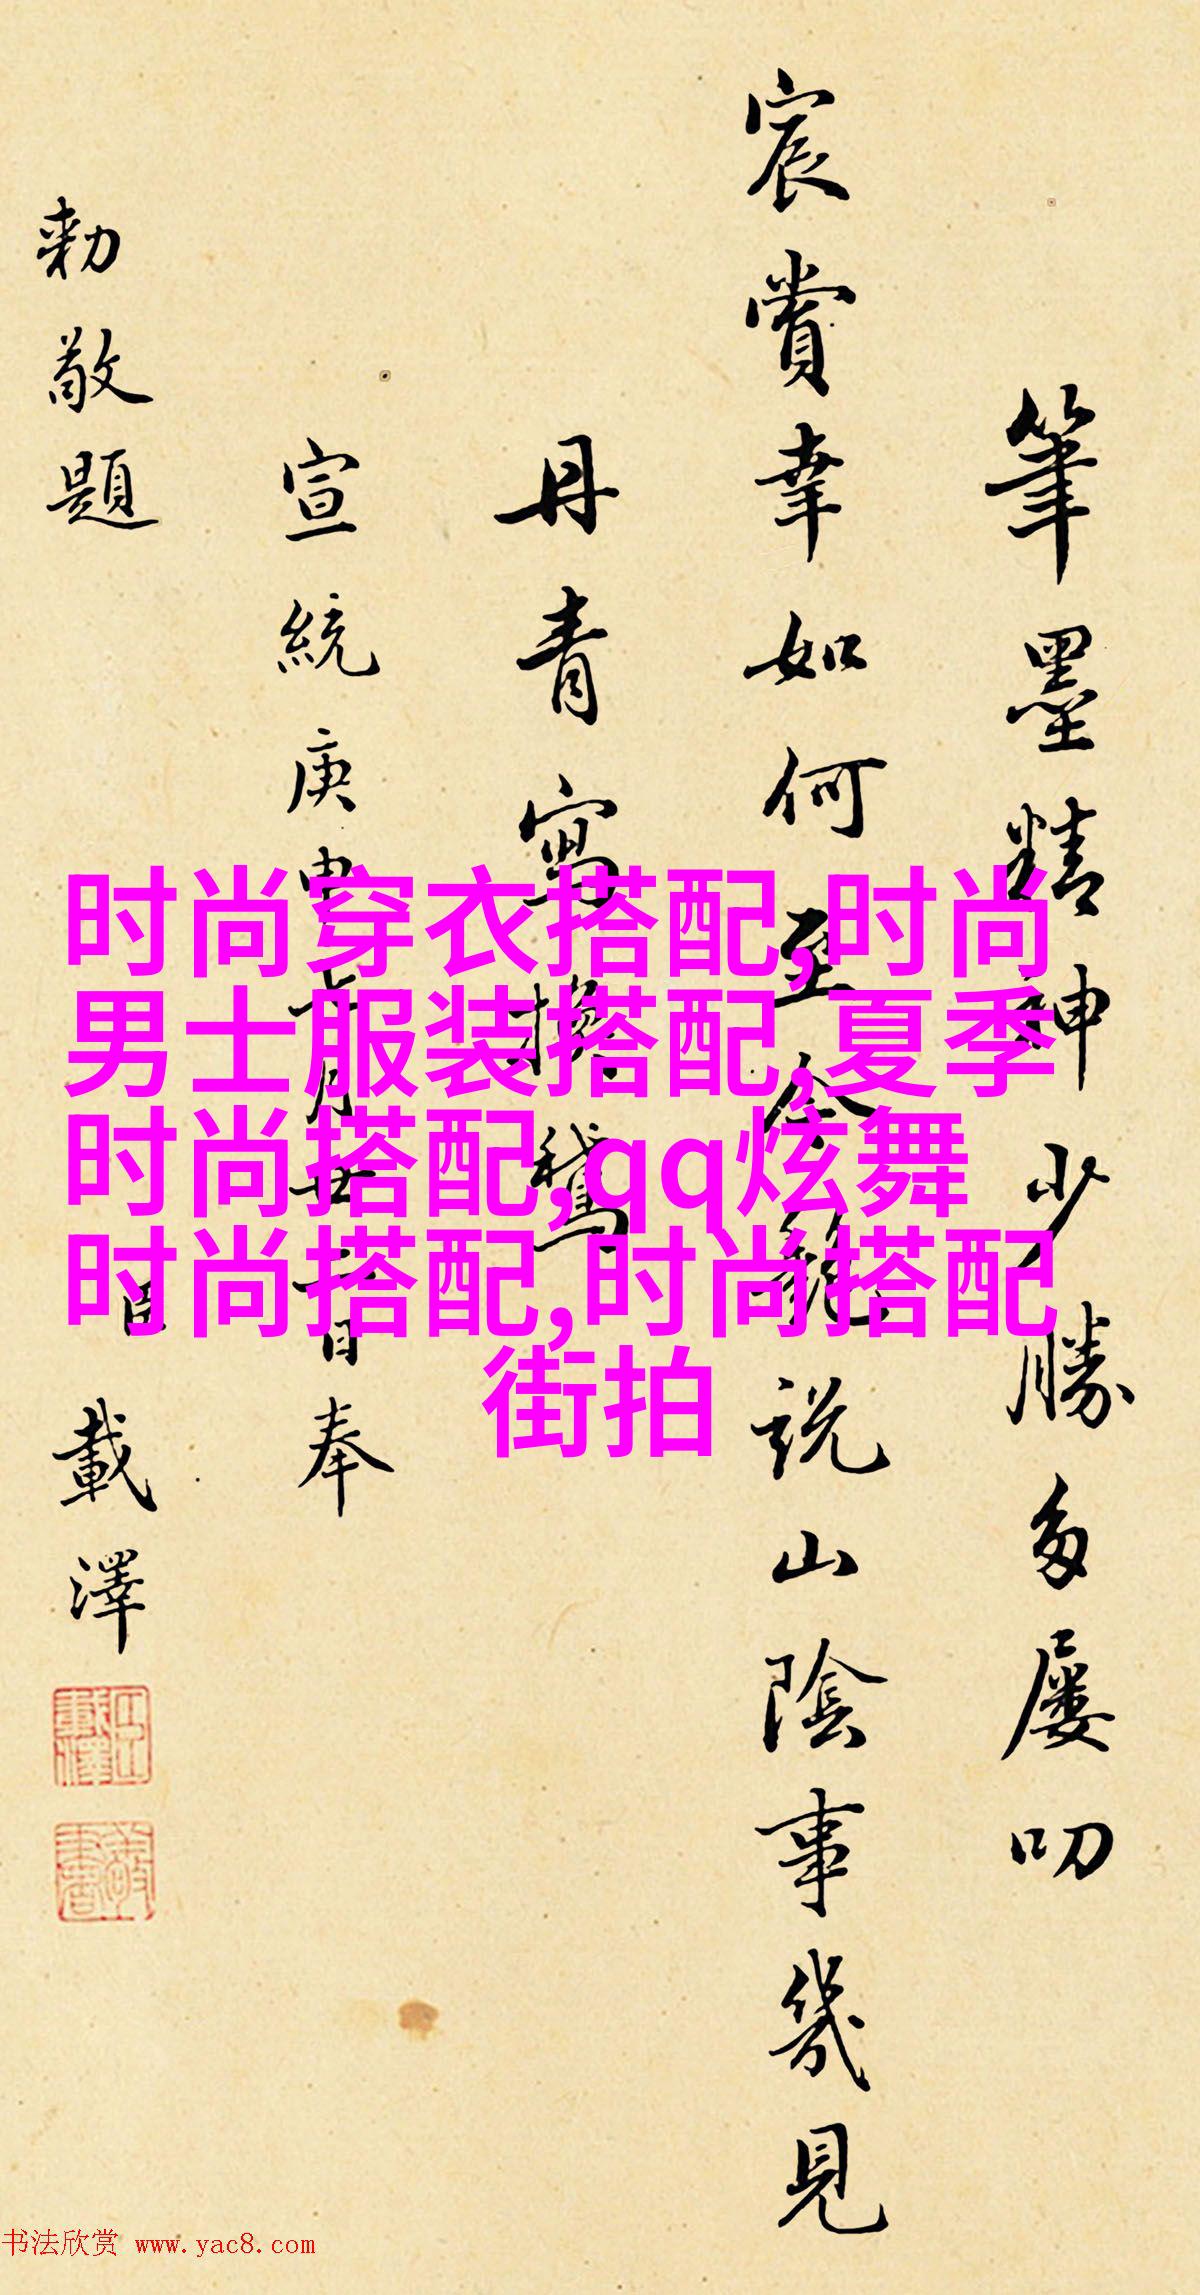 筆墨精神少勝多屢叨
宸賞幸如何至今艷説山陰事幾見
丹青寫換鵝
宣統庚申七月廿一日奉
勅敬題
臣載澤
时尚穿衣搭配,时尚
男士服装搭配,夏季
时尚搭配,qq炫舞
时尚搭配,时尚搭配
街拍
书法欣赏 www.yac8.com